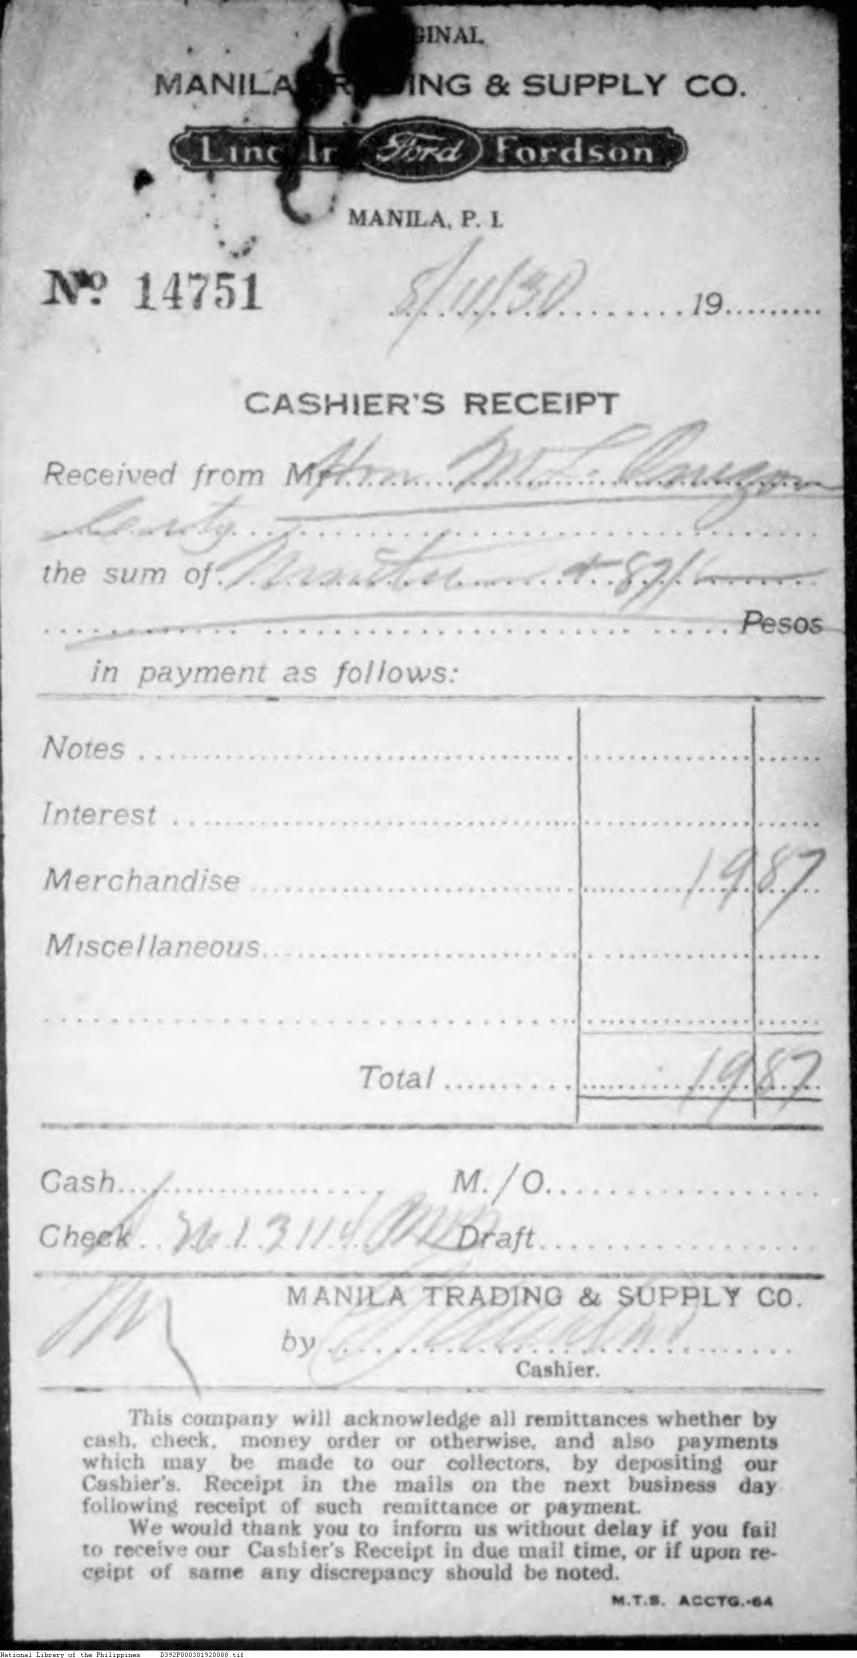 GINAL
MANILA TRADING & SUPPLY CO.
Lincoln Ford Fordson
MANILA, P. I.
No. 14751
8/11/30 19
CASHIER'S RECEIPT
Received from Mr. Hon M. L. Quezon
the sum of Nineteen & 87/
Pesos
in payment as follows:
Notes
Interest
Merchandise 19 87
Miscellaneous
Total 19 87
Cash M./O.
Check No 13114 Draft
MANILA TRADING & SUPPLY CO.
by
Cashier.
This company will acknowledge all remittances whether by
cash, check, money order or otherwise, and also payments
which may be made to our collectors, by depositing our
Cashier's. Receipt in the mails on the next business day
following receipt of such remittance or payment.
We would thank you to inform us without delay if you fail
to receive our Cashier's Receipt in due mail time, or if upon re-
ceipt of same any discrepancy should be noted.
M.T.S. ACCTG.-64
National Library of the Philippines D392P000301920088.tif